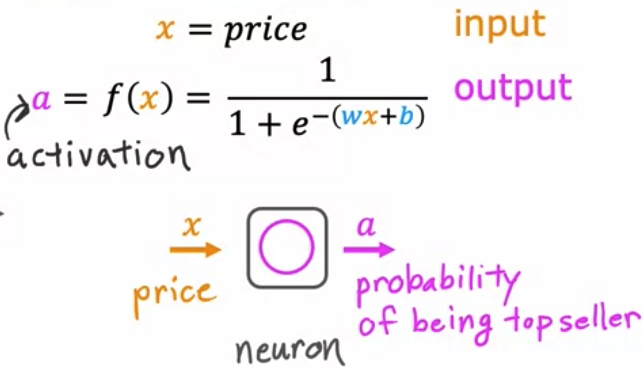 x = price input
a = f(x) = 1 / (1 + e^-(wx+b)) output
activation
x a
price probability
of being top seller
neuron